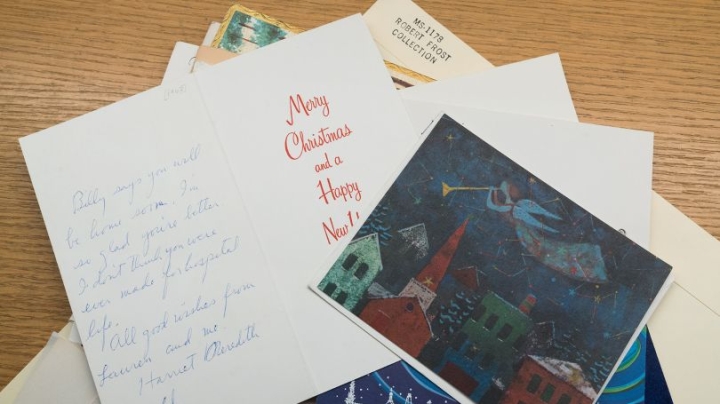 MS-1178
ROBERT FROST
COLLECTION
Billy says you will
be home soon. I'm
so glad you're better
I don't think you were
ever made for hospital
life.
All good wishes from
Lauren and me.
Harriet Meredith
Merry
Christmas
and a
Happy
New